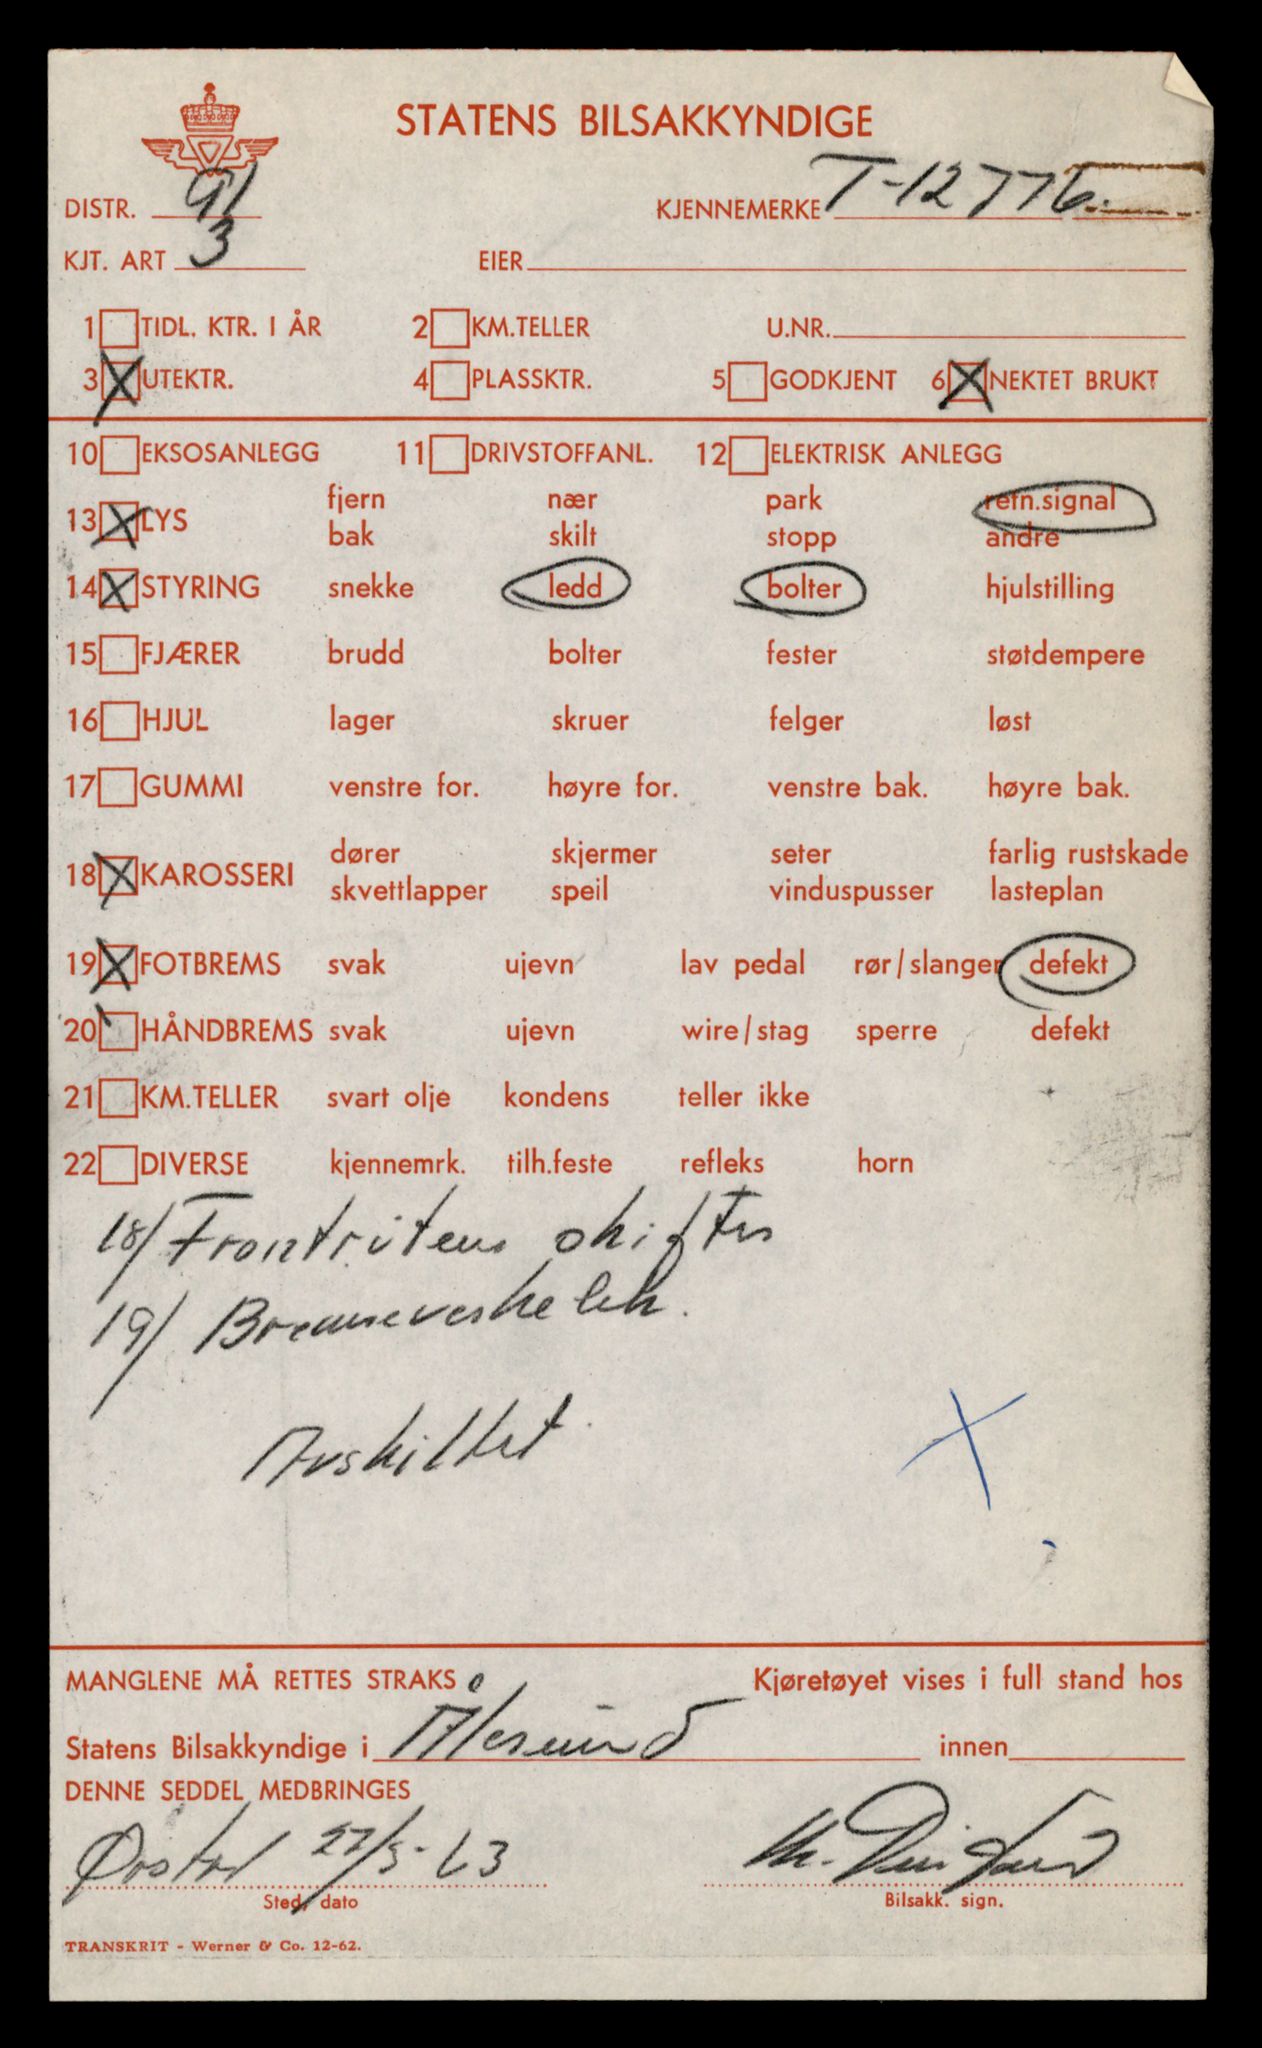 STATENS BILSAKKYNDIGE
DISTR. 91 KJENNEMERKE T-12776.
KJT. ART 3 EIER
1 TIDL. KTR. I ÅR 2 KM.TELLER U.NR.
3 X UTEKTR. 4 PLASSKTR. 5 GODKJENT 6 X NEKTET BRUKT
10 EKSOSANLEGG 11 DRIVSTOFFANL. 12 ELEKTRISK ANLEGG
fjern nær park retn.signal
13 X LYS
bak skilt stopp andre
14 X STYRING snekke ledd bolter hjulstilling
15 FJÆRER brudd bolter fester støtdempere
16 HJUL lager skruer felger løst
17 GUMMI venstre for. høyre for. venstre bak. høyre bak.
dører skjermer seter farlig rustskade
18 X KAROSSERI
skvettlapper speil vinduspusser lasteplan
19 X FOTBREMS svak ujevn lav pedal rør/slanger defekt
20 HÅNDBREMS svak ujevn wire/stag sperre defekt
21 KM.TELLER svart olje kondens teller ikke
22 DIVERSE kjennemrk. tilh.feste refleks horn
18/ Frontruten skiftes
19/ Bremseveske lek.
Avskiltet
X
MANGLENE MÅ RETTES STRAKS Kjøretøyet vises i full stand hos
Statens Bilsakkyndige i Ålesund innen
DENNE SEDDEL MEDBRINGES
Ørsta 22/5-63
Sted, dato Bilsakk. sign.
TRANSKRIT - Werner & Co. 12-62.